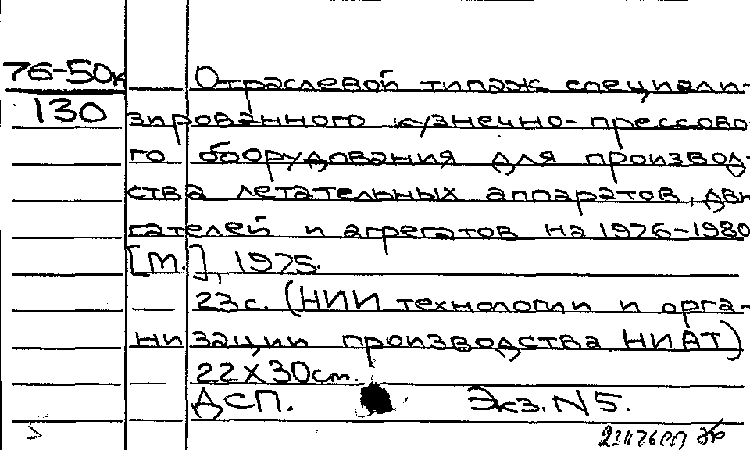 76-50к
130
Отраслевой типаж специали-
зированного кузнечно-прессово-
го оборудования для производ-
ства летательных аппаратов, дви-
гателей и агрегатов на 1976-1980
[М.], 1975.
23 с. (НИИ технологии и орга-
низации производства НИАТ)
22 х 30 cm.
ДСП. Экз. N 5.